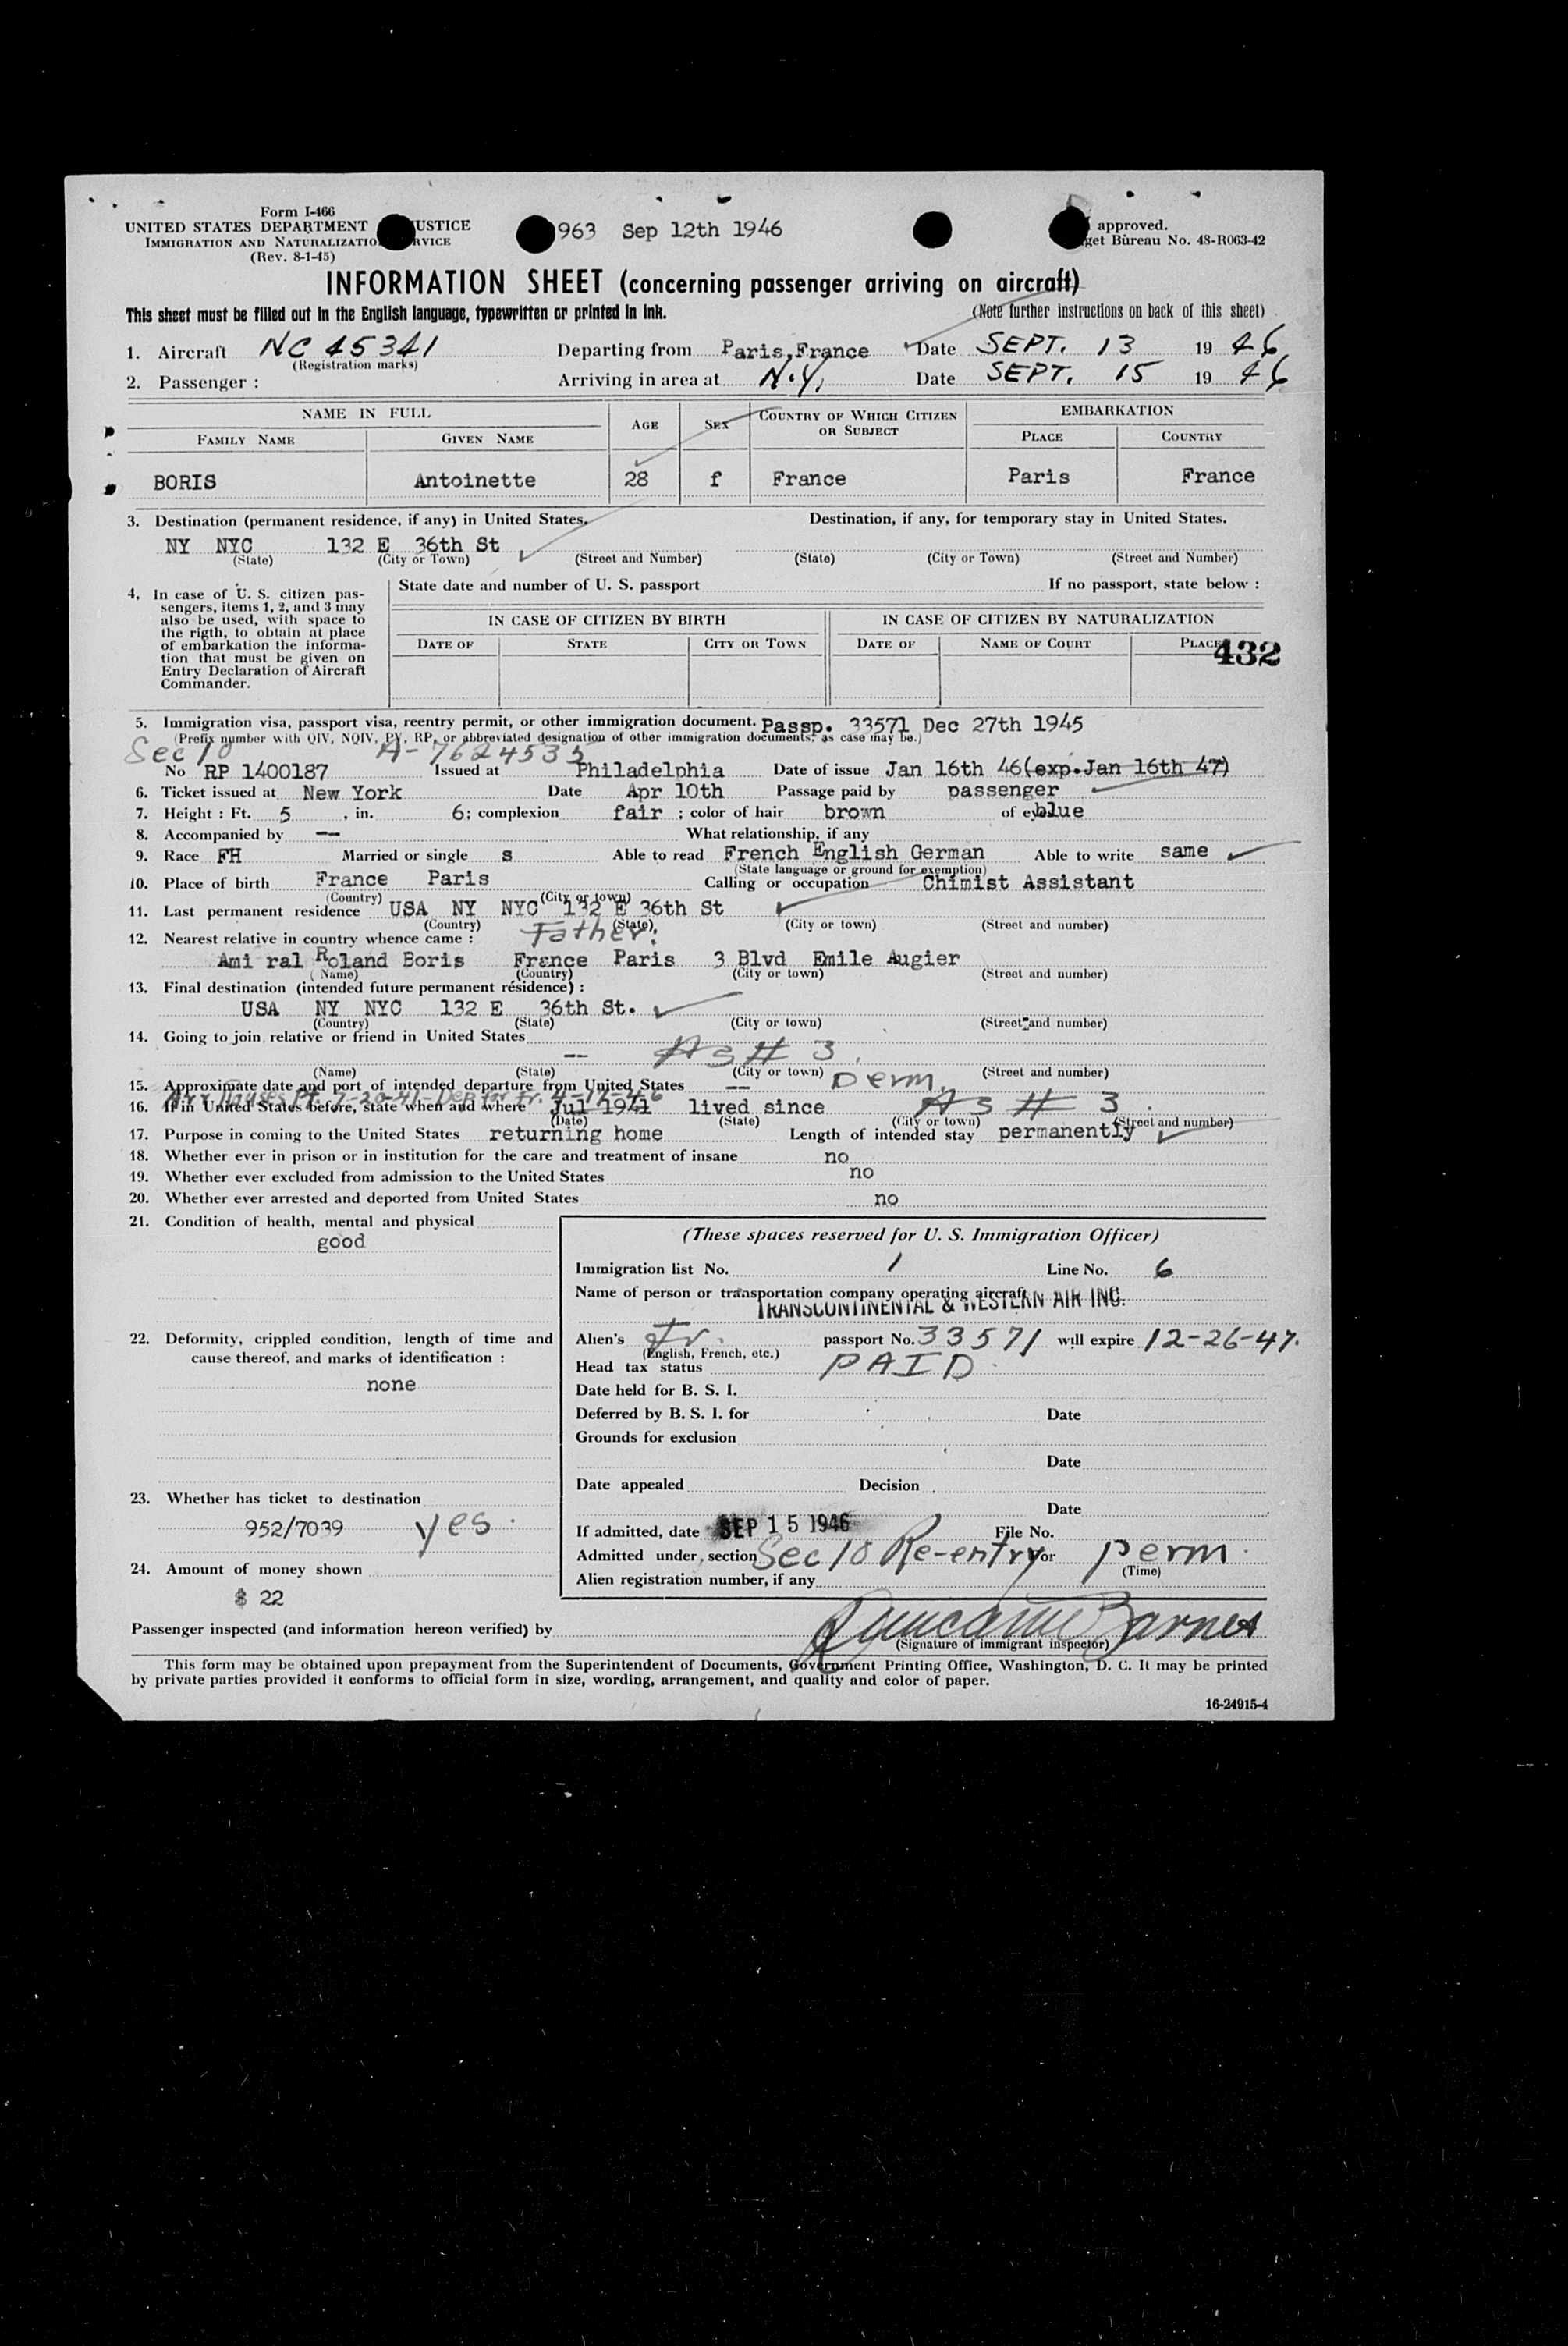 Form I-466
UNITED STATES DEPARTMENT JUSTICE
IMMIGRATION AND NATURALIZATION SERVICE
(Rev. 8-1-45)
963 Sep 12th 1946
approved.
get Bureau No. 48-R063-42
INFORMATION SHEET (concerning passenger arriving on aircraft)
This sheet must be filled out in the English language, typewritten or printed in ink. (Note further instructions on back of this sheet)
1. Aircraft NC 45341 Departing from Paris, France Date SEPT. 13 19 46
(Registration marks)
2. Passenger : Arriving in area at N.Y. Date SEPT. 15 19 46
NAME IN FULL AGE SEX COUNTRY OF WHICH CITIZEN OR SUBJECT EMBARKATION
FAMILY NAME GIVEN NAME PLACE COUNTRY
BORIS Antoinette 28 f France Paris France
3. Destination (permanent residence, if any) in United States. Destination, if any, for temporary stay in United States.
NY NYC 132 E 36th St
(State) (City or Town) (Street and Number) (State) (City or Town) (Street and Number)
4. In case of U. S. citizen pas-
sengers, items 1, 2, and 3 may
also be used, with space to
the rigth, to obtain at place
of embarkation the informa-
tion that must be given on
Entry Declaration of Aircraft
Commander.
State date and number of U. S. passport If no passport, state below :
IN CASE OF CITIZEN BY BIRTH IN CASE OF CITIZEN BY NATURALIZATION
DATE OF STATE CITY OR TOWN DATE OF NAME OF COURT PLACE
432
5. Immigration visa, passport visa, reentry permit, or other immigration document. Passp. 33571 Dec 27th 1945
(Prefix number with QIV, NQIV, PV, RP, or abbreviated designation of other immigration documents, as case may be.)
Sec 10 A-7624535
No RP 1400187 Issued at Philadelphia Date of issue Jan 16th 46(exp.Jan 16th 47)
6. Ticket issued at New York Date Apr 10th Passage paid by passenger
7. Height : Ft. 5 , in. 6; complexion fair ; color of hair brown of eyes blue
8. Accompanied by -- What relationship, if any
9. Race FH Married or single s Able to read French English German Able to write same
(State language or ground for exemption)
10. Place of birth France Paris Calling or occupation Chimist Assistant
(Country) (City or town)
11. Last permanent residence USA NY NYC 132 E 36th St
(Country) (State) (City or town) (Street and number)
12. Nearest relative in country whence came : Father:
Ami ral Roland Boris France Paris 3 Blvd Emile Augier
(Name) (Country) (City or town) (Street and number)
13. Final destination (intended future permanent résidence) :
USA NY NYC 132 E 36th St.
(Country) (State) (City or town) (Street and number)
14. Going to join relative or friend in United States
-- As # 3
(Name) (State) (City or town) (Street and number)
15. Approximate date and port of intended departure from United States -- perm.
Arr Rouses Pt. 7-20-41-Dep for Fr. 4-17-46
16. If in United States before, state when and where Jul 1941 lived since As # 3.
(Date) (State) (City or town) (Street and number)
17. Purpose in coming to the United States returning home Length of intended stay permanently
18. Whether ever in prison or in institution for the care and treatment of insane no
19. Whether ever excluded from admission to the United States no
20. Whether ever arrested and deported from United States no
21. Condition of health, mental and physical
good
22. Deformity, crippled condition, length of time and
cause thereof, and marks of identification :
none
23. Whether has ticket to destination
952/7039 yes
24. Amount of money shown
$ 22
(These spaces reserved for U. S. Immigration Officer)
Immigration list No. 1 Line No. 6
Name of person or transportation company operating aircraft
TRANSCONTINENTAL & WESTERN AIR INC.
Alien's Fr. passport No. 33571 will expire 12-26-47.
(English, French, etc.)
Head tax status PAID
Date held for B. S. I.
Deferred by B. S. I. for Date
Grounds for exclusion
Date
Date appealed Decision
Date
If admitted, date SEP 15 1946 File No.
Admitted under section Sec 10 Re-entry for perm
(Time)
Alien registration number, if any
Passenger inspected (and information hereon verified) by
(Signature of immigrant inspector)
This form may be obtained upon prepayment from the Superintendent of Documents, Government Printing Office, Washington, D. C. It may be printed
by private parties provided it conforms to official form in size, wording, arrangement, and quality and color of paper.
16-24915-4